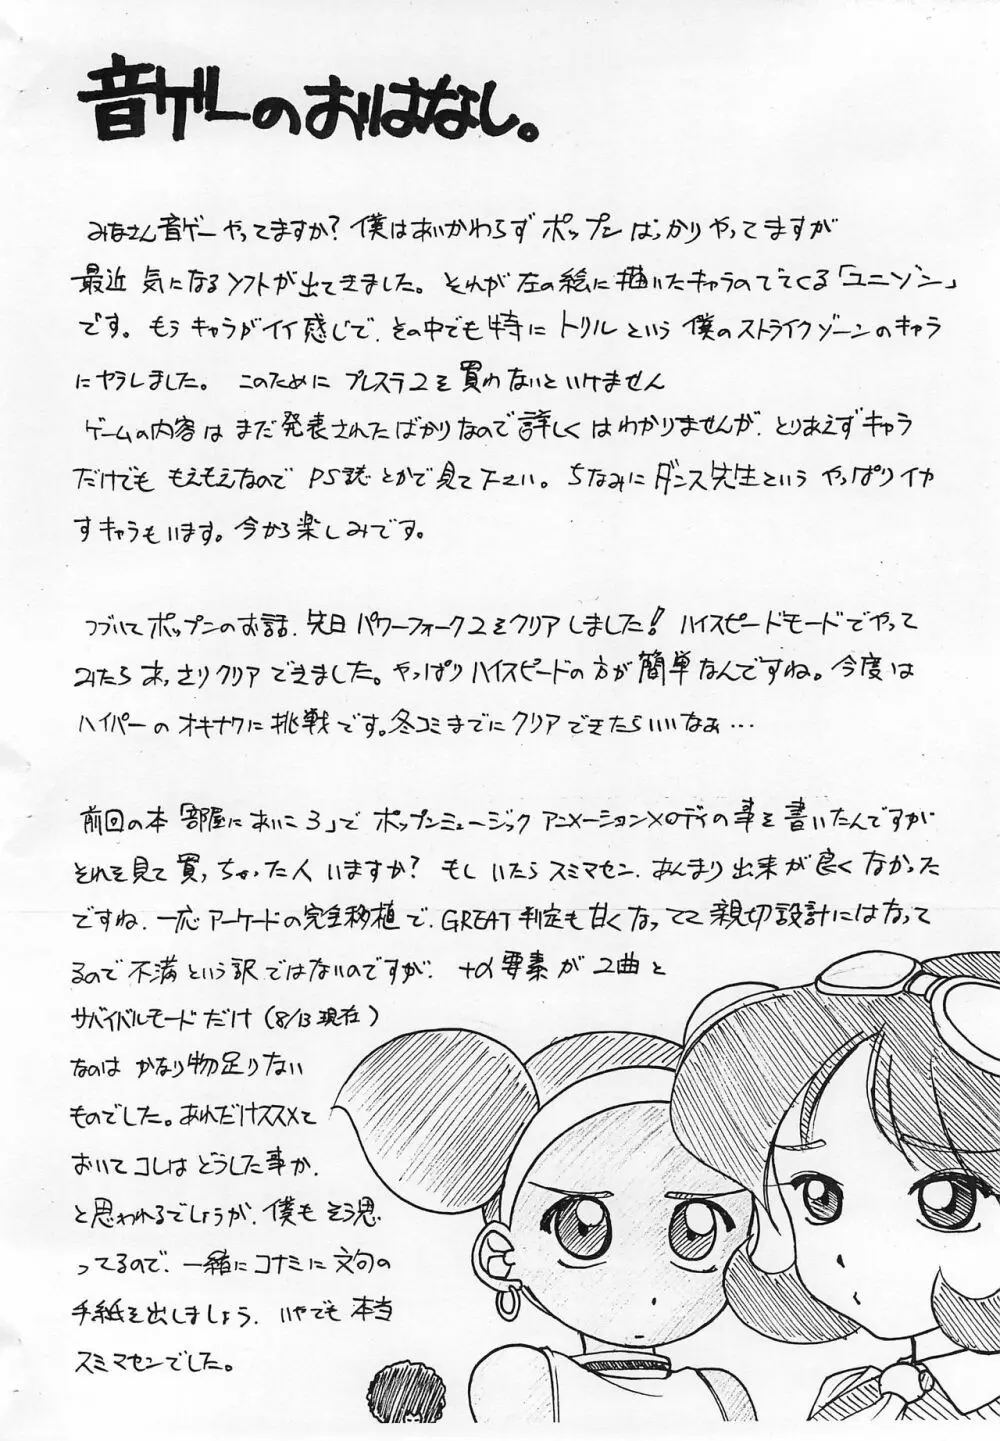 音ゲーのおはなし。
みなさん音ゲーやってますか？僕はあいかわらずポップンばっかりやってますが
最近気になるソフトが出てきました。それが左の絵に描いたキャラのでてくる「ユニゾン」
です。もうキャラがイイ感じで、その中でも特にトリルという僕のストライクゾーンのキャラ
にヤラレました。このためにプレステ2を買わないといけません
ゲームの内容はまだ発表されたばかりなので詳しくはわかりませんが、とりあえずキャラ
だけでももえもえなのでPS誌とかで見て下さい。ちなみにダンス先生というやっぱりイカ
すキャラもいます。今から楽しみです。
つづいてポップンのお話、先日パワーフォーク2をクリアしました！ハイスピードモードでやって
みたらあっさりクリアできました。やっぱりハイスピードの方が簡単なんですね。今度は
ハイパーのオキナワに挑戦です。冬コミまでにクリアできたらいいなぁ…
前回の本「部屋においでころ」で ポップンミュージック アニメーションメロディの事を書いたんですが
それを見て買っちゃった人いますか？もしいたらスミマセン、あんまり出来が良くなかった
ですね、一応アーケードの完全移植で、GREAT判定も甘くなってて親切設計にはなって
るので不満という訳ではないのですが、+α要素が2曲と
サバイバルモードだけ（8/13現在）
なのはかなり物足りない
ものでした。あれだけススメて
おいてコレはどうした事か、
と思われるでしょうが、僕もそう思
ってるので、一緒にコナミに文句の
手紙を出しましょう、いやでも本当
スミマセンでした。